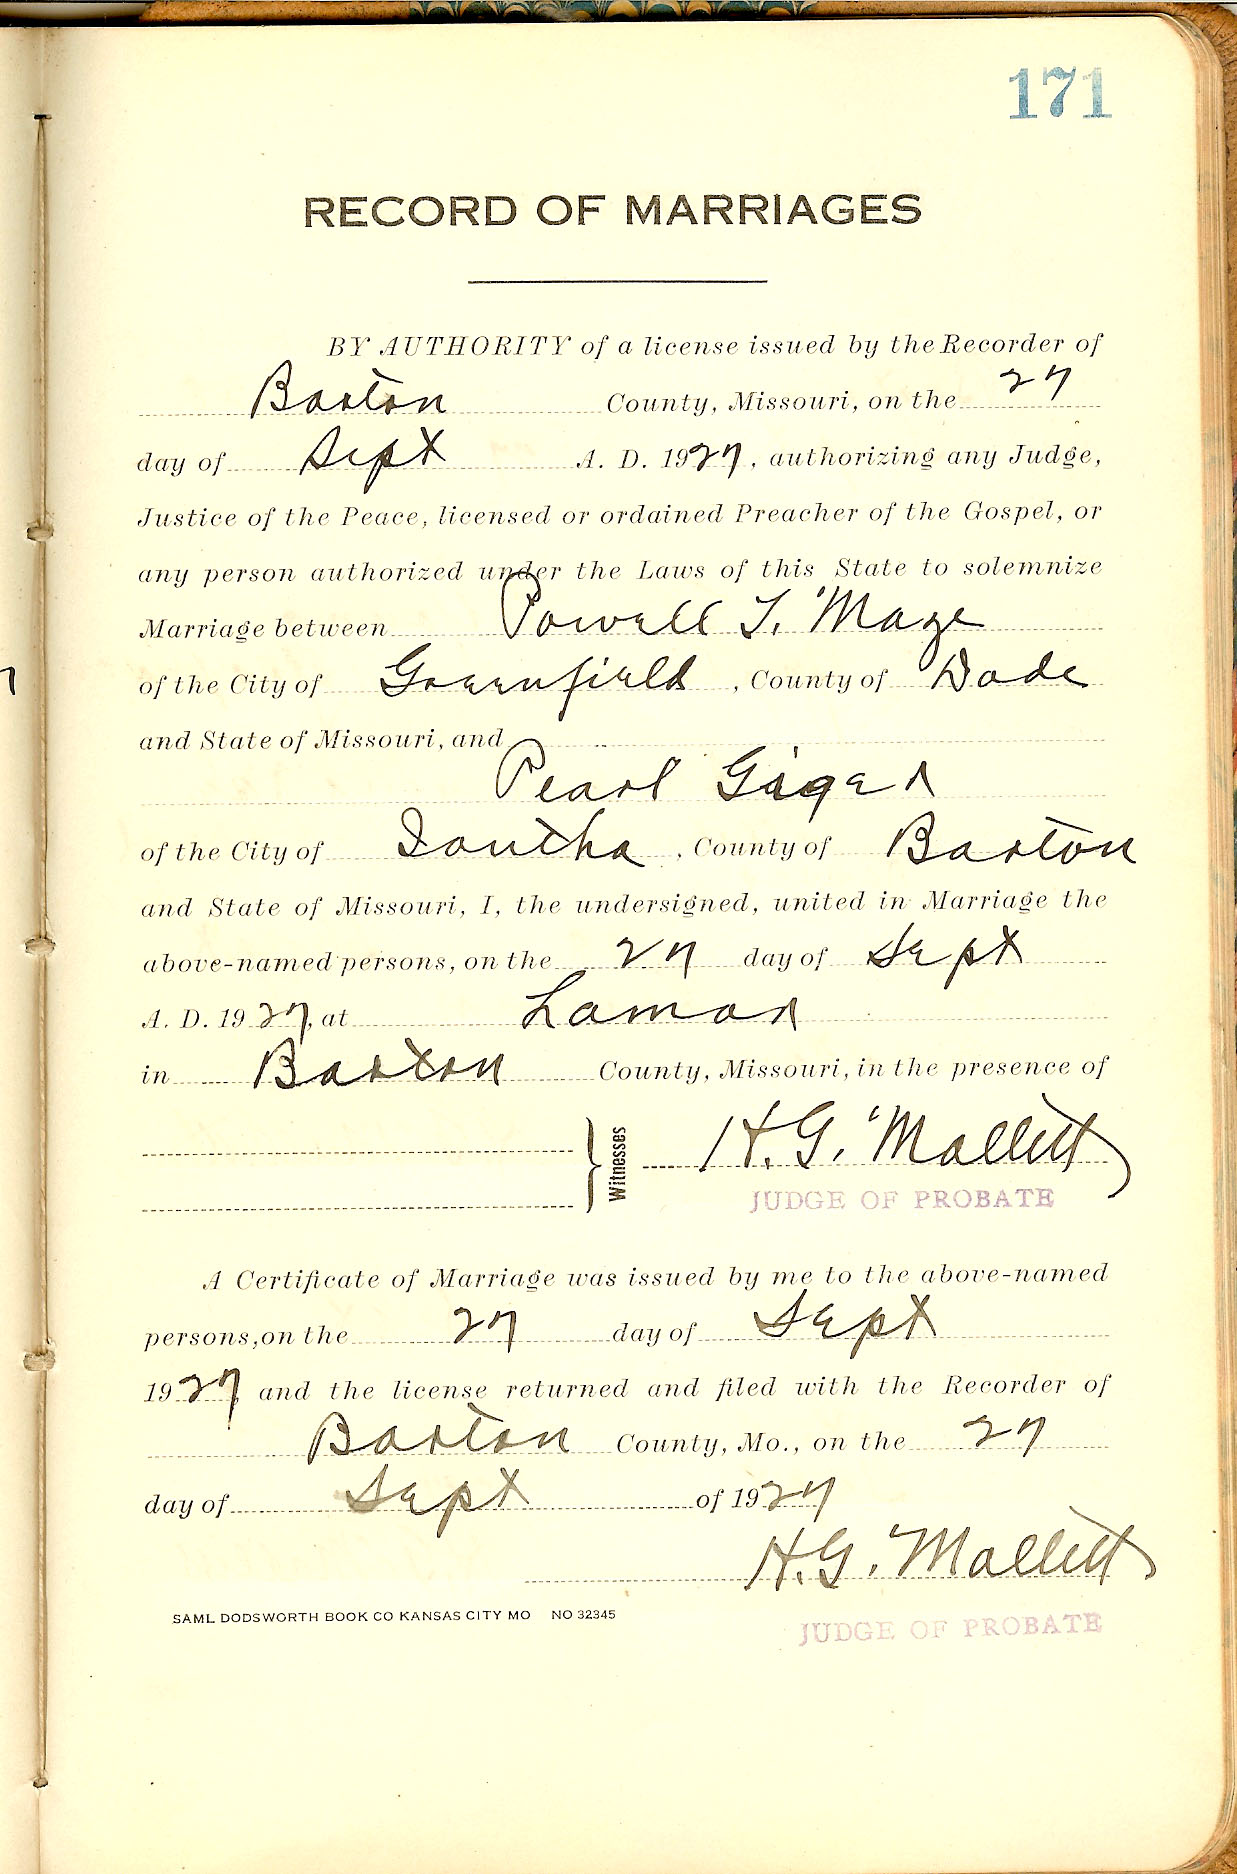 171
RECORD OF MARRIAGES
BY AUTHORITY of a license issued by the Recorder of
Barton County, Missouri, on the 27
day of Sept A. D. 1927, authorizing any Judge,
Justice of the Peace, licensed or ordained Preacher of the Gospel, or
any person authorized under the Laws of this State to solemnize
Marriage between Powell T. Maze
of the City of Greenfield, County of Dade
and State of Missouri, and
Pearl Giger
of the City of Iantha, County of Barton
and State of Missouri, I, the undersigned, united in Marriage the
above-named persons, on the 27 day of Sept
A. D. 1927, at Lamar
in Barton County, Missouri, in the presence of
Witnesses H. G. Mallett
JUDGE OF PROBATE
A Certificate of Marriage was issued by me to the above-named
persons, on the 27 day of Sept
1927 and the license returned and filed with the Recorder of
Barton County, Mo., on the 27
day of Sept of 1927
H. G. Mallett
SAML DODSWORTH BOOK CO KANSAS CITY MO NO 32345
JUDGE OF PROBATE